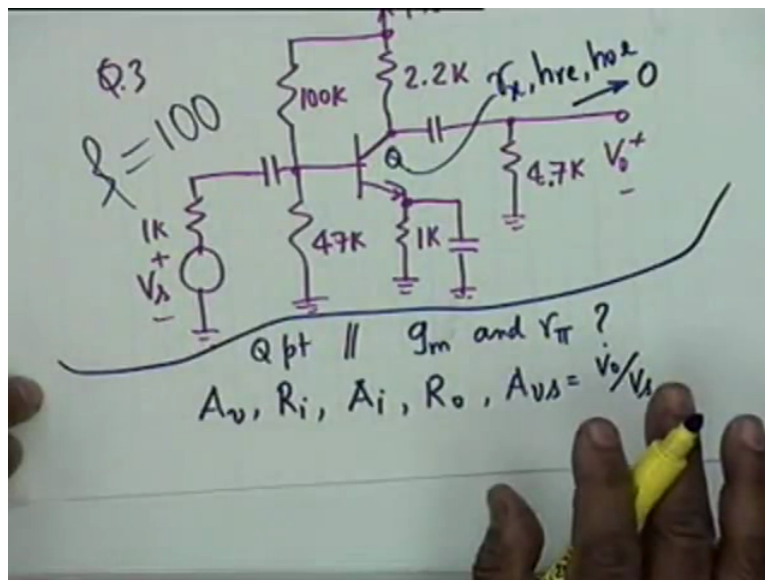 Q.3
β=100
100K
2.2K
rₓ, hre, hoe
0
Q
4.7K
V₀
+
-
1K
+
Vs
-
47K
1K
Q pt || gm and rπ ?
Av, Ri, Ai, Ro, Avs = Vo/Vs